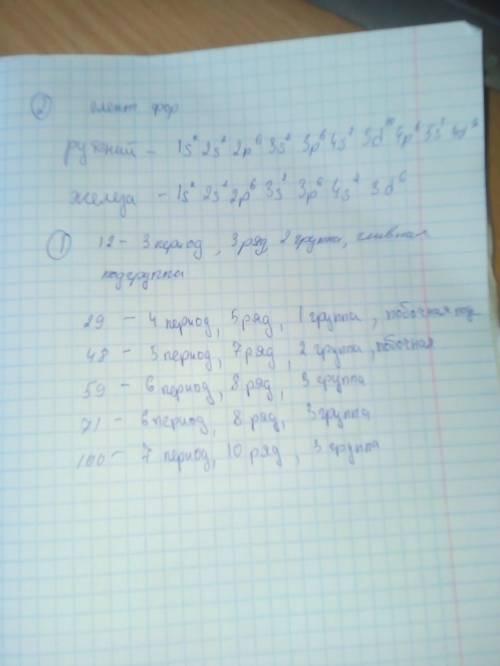 ② элект фор
рутений - 1s² 2s² 2p⁶ 3s² 3p⁶ 4s² 3d¹⁰ 4p⁶ 5s¹ 4d
железа - 1s² 2s² 2p⁶ 3s² 3p⁶ 4s² 3d⁶
① 12 - 3 период, 3 ряд, 2 группа, главная
подгруппа
29 - 4 период, 5 ряд, 1 группа, побочная под
48 - 5 период, 7 ряд, 2 группа, побочная
59 - 6 период, 8 ряд, 3 группа
71 - 6 период, 8 ряд, 3 группа
100 - 7 период, 10 ряд, 3 группа